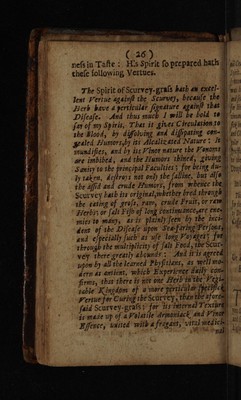 ( 26 )
ness in Taste : His Spirit so prepared hath
these following Vertues.
The Spirit of Scurvey-grass hath an excel-
lent Vertue against the Scurvey, because the
Herb have a perticular signature against that
Disease. And thus much I will be bold to
say of my Spirit. That it gives Circulation to
the Blood, by dissolving and dissipating con-
gealed Humors, by its Alcalizated Nature : It
mundifies, and by its Vinor nature the Venoms
are imbibed, and the Humors thined, giveing
Sanity to the principal Faculties ; for being du-
ly taken, destroys not only the saline, but also
the assid and crude Humors, from whence the
Scurvey hath its original, whether bred through
the eating of grass, raw, crude Fruit, or raw
Herbs; or salt Fish of long continuence, are ene-
mies to many, as is plainly seen by the inci-
dent of the Disease upon Sea-faring Persons,
and especially such as use long Voyages; for
through the multiplicity of salt Food, the Scur-
vey there greatly abounds : And it is agreed
upon by all the learned Physitians, as well mo-
dern as antient, which Experience daily con-
firms, that there is not one Herb in the Vege-
table Kingdom of a more perticular specifick
Vertue for Curing the Scurvey, then the afore-
said Scurvey-grass; for its internal Texture
is made up of a Volatile Armoniack and Vinor
Essence, united with a fragant, vital medici-
nal